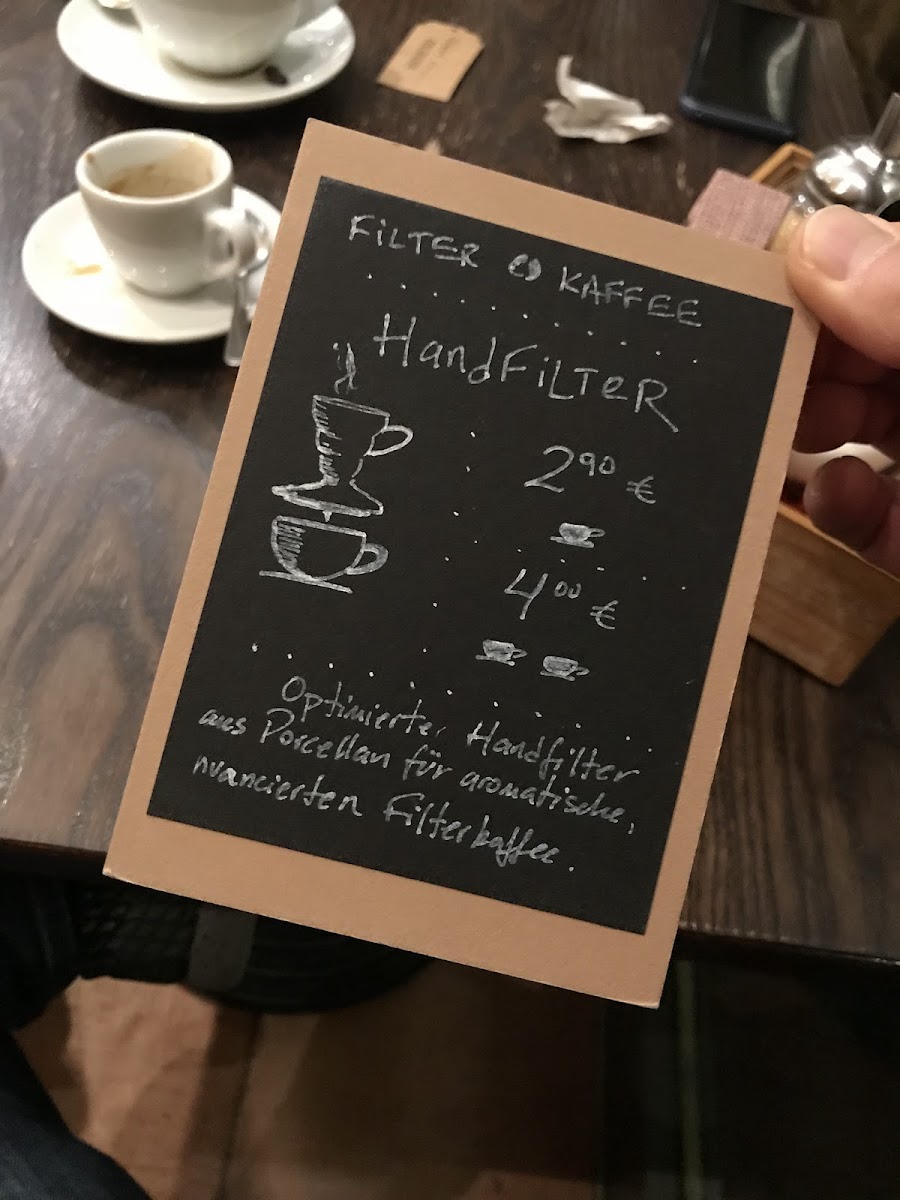 FiLTER KAFFEE
HandFiLTeR
2⁹⁰ €
4⁰⁰ €
Optimierter Handfilter
aus Porcellan für aromatische,
nuancierten Filterkaffee.